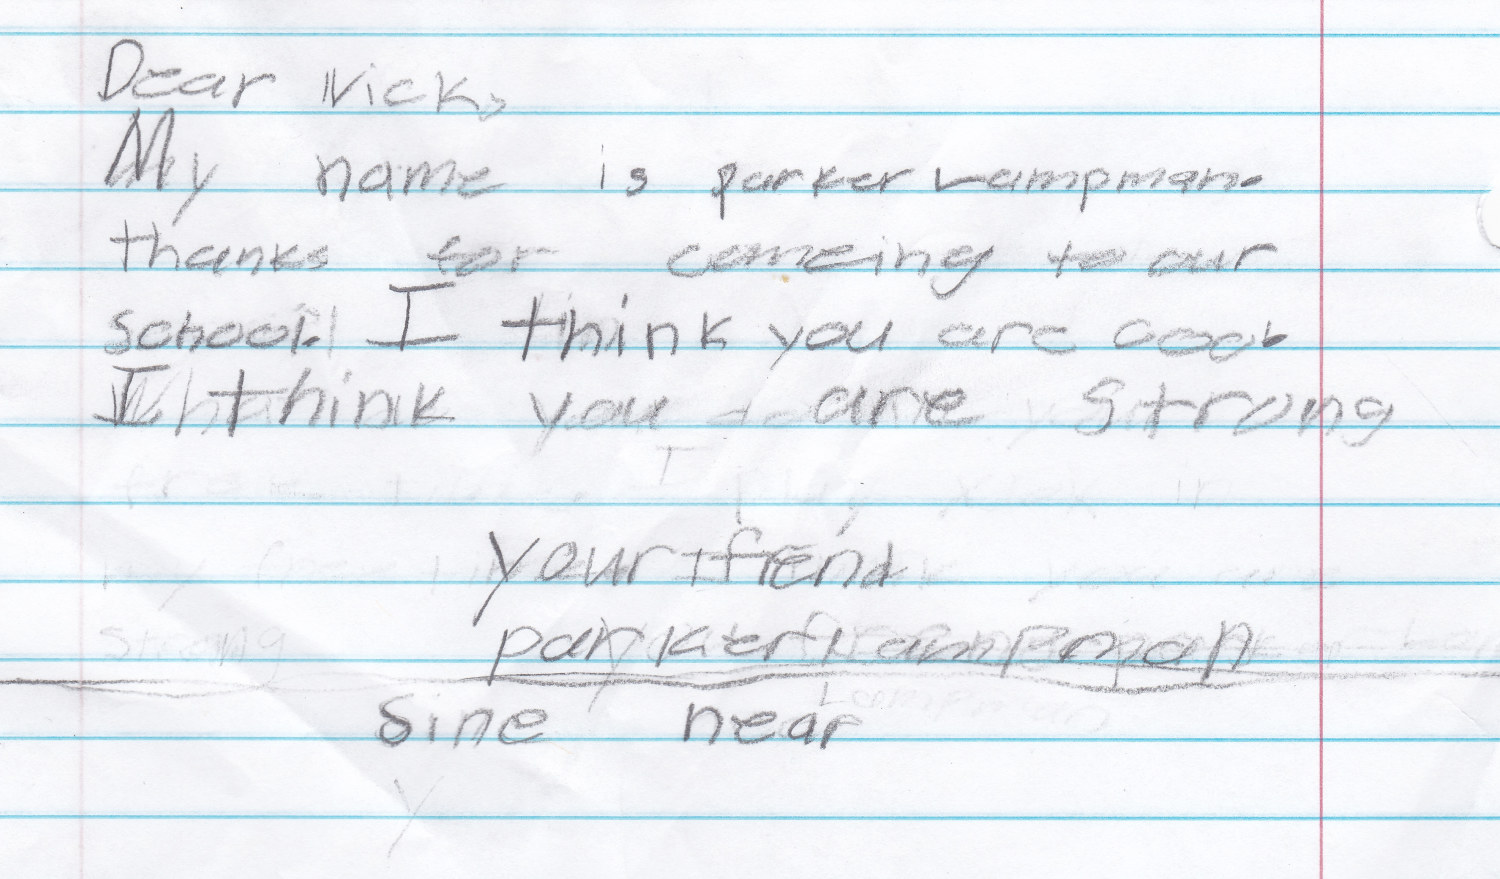 Dear Nick,
My name is parker Lampman.
thanks for comeing to our
school. I think you are cool.
I think you are strong
your fiend
parker Lampman
Sine hear